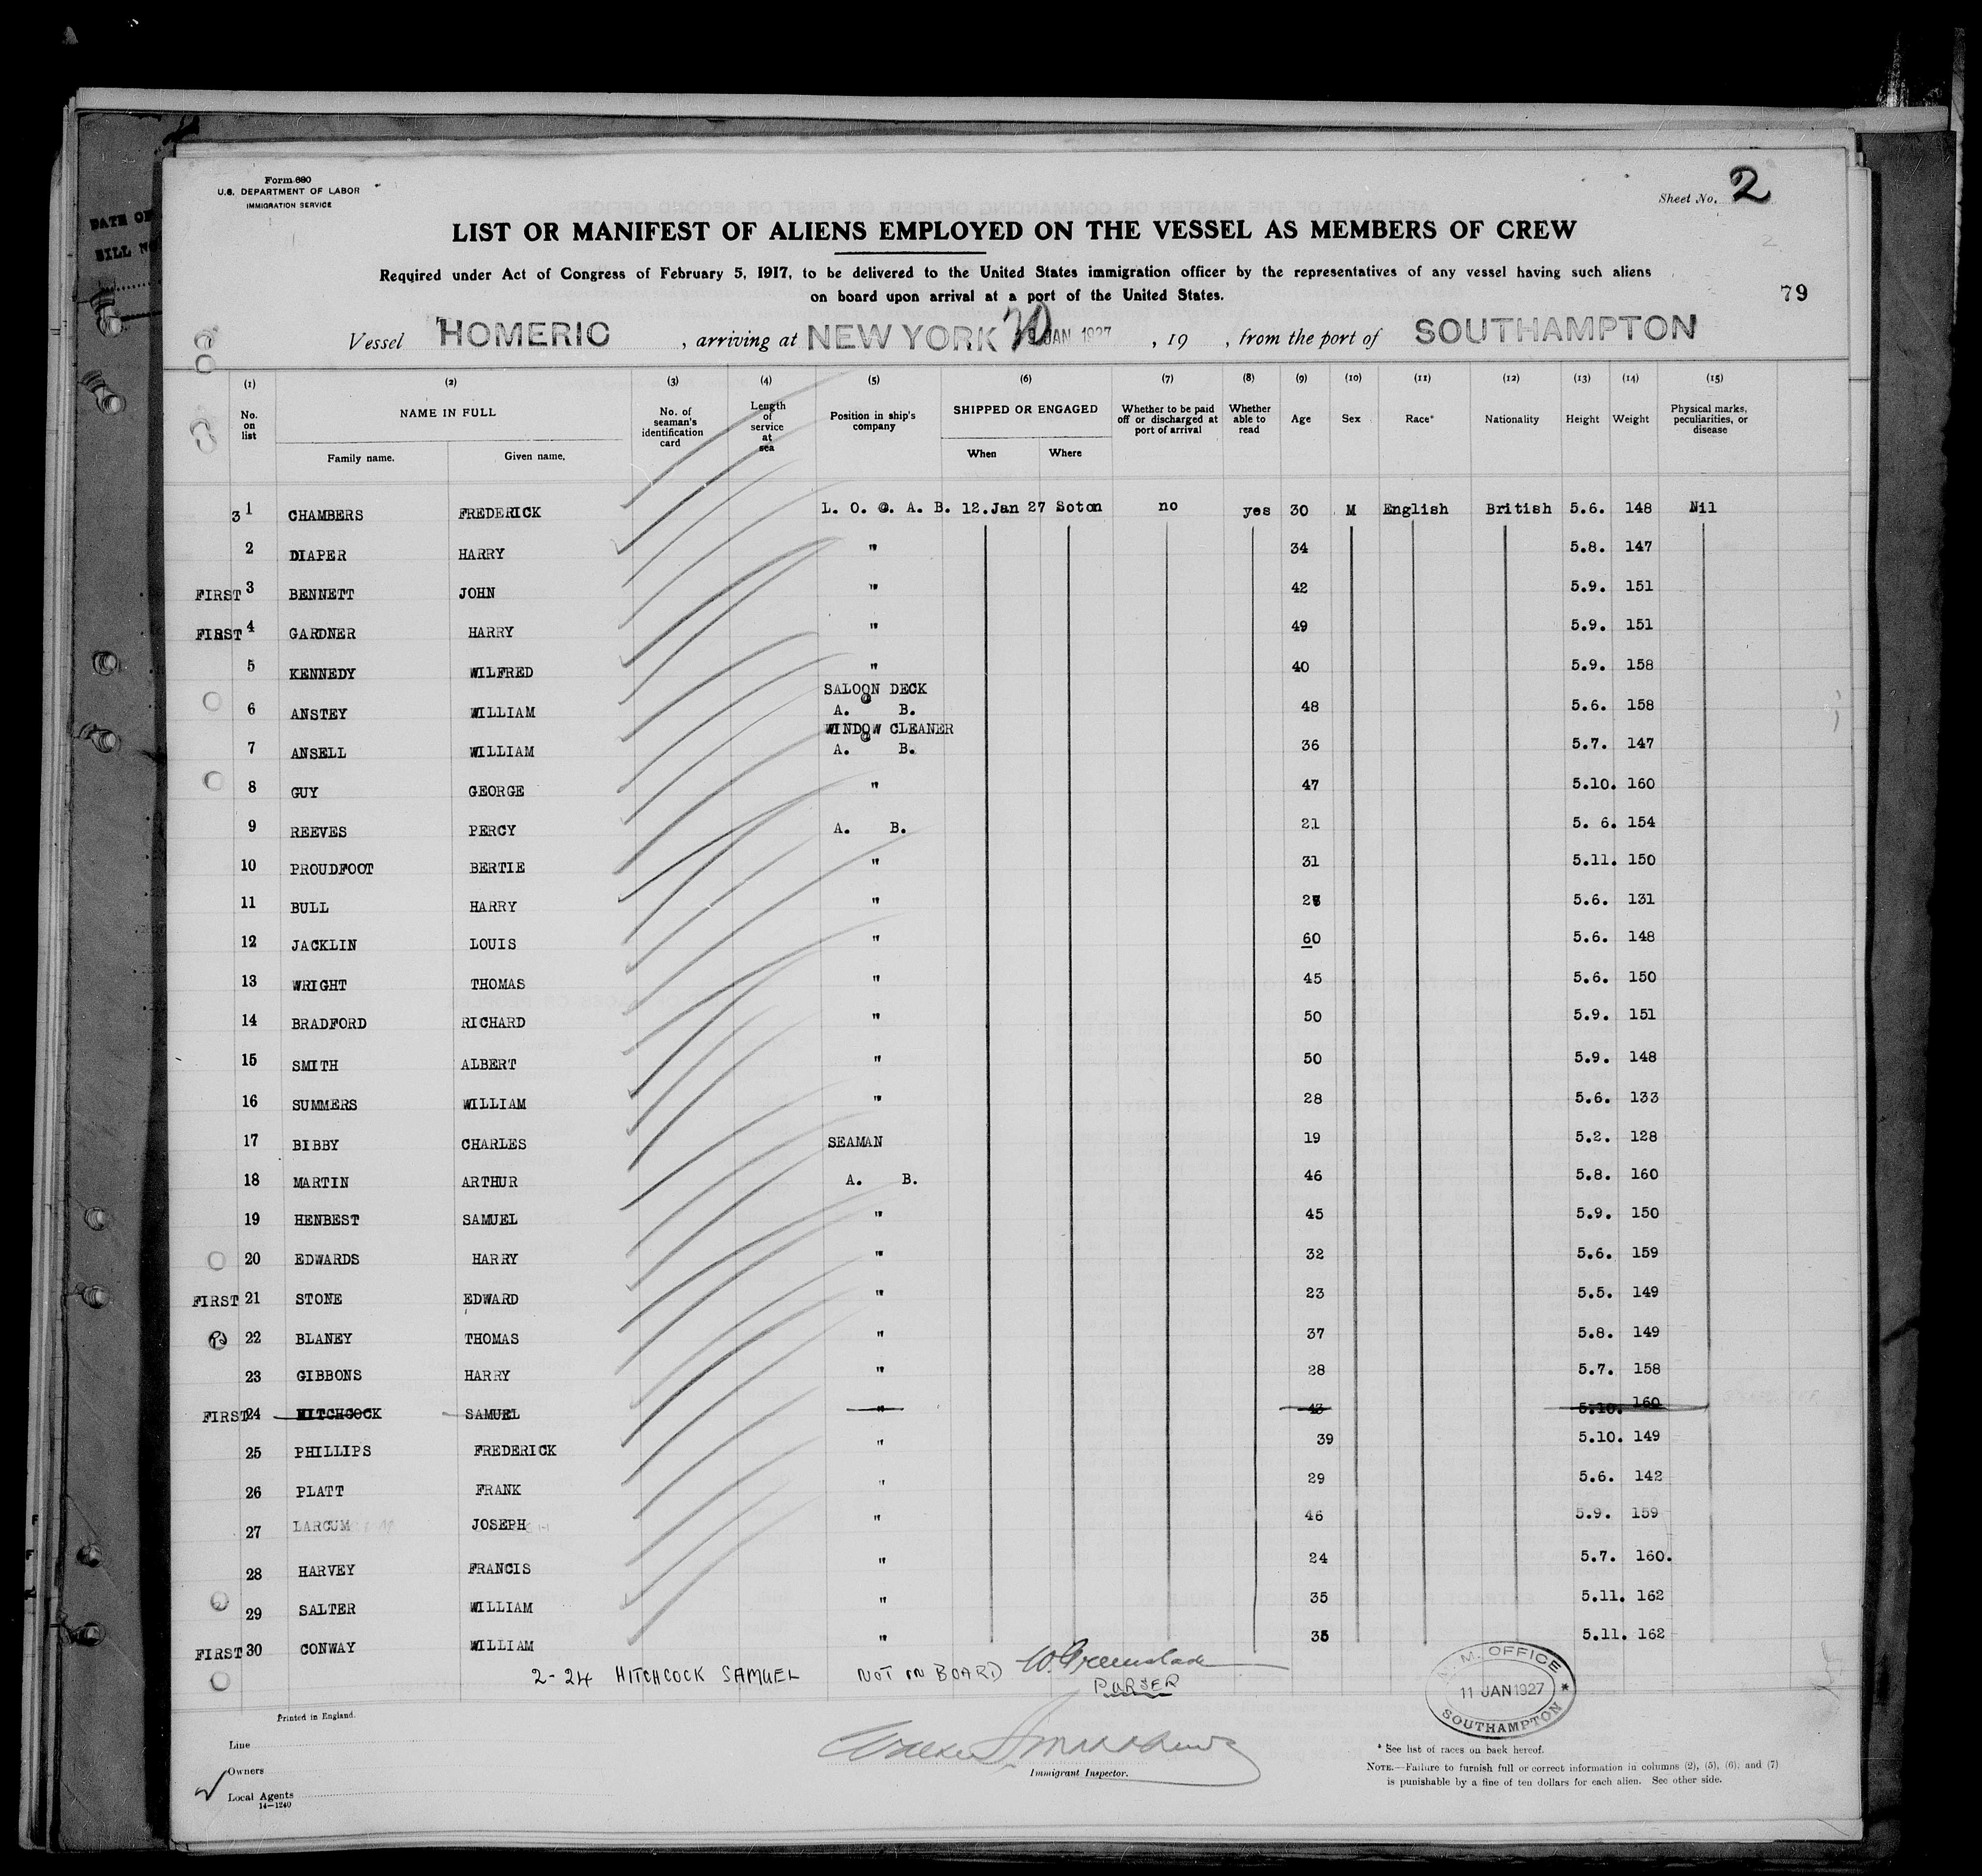 Form 690
U.S. DEPARTMENT OF LABOR
IMMIGRATION SERVICE
Sheet No. 2
LIST OR MANIFEST OF ALIENS EMPLOYED ON THE VESSEL AS MEMBERS OF CREW
Required under Act of Congress of February 5, 1917, to be delivered to the United States immigration officer by the representatives of any vessel having such aliens
on board upon arrival at a port of the United States.
79
Vessel HOMERIC , arriving at NEW YORK 20 JAN 1927 , 19 , from the port of SOUTHAMPTON
(1) (2) (3) (4) (5) (6) (7) (8) (9) (10) (11) (12) (13) (14) (15)
No. on list NAME IN FULL Family name. Given name. No. of seaman's identification card Length of service at sea Position in ship's company SHIPPED OR ENGAGED When Where Whether to be paid off or discharged at port of arrival Whether able to read Age Sex Race* Nationality Height Weight Physical marks, peculiarities, or disease
3 1 CHAMBERS FREDERICK L. O. O. A. B. 12.Jan 27 Soton no yes 30 M English British 5.6. 148 Nil
2 DIAPER HARRY " 34 5.8. 147
FIRST 3 BENNETT JOHN " 42 5.9. 151
FIRST 4 GARDNER HARRY " 49 5.9. 151
5 KENNEDY WILFRED " 40 5.9. 158
SALOON DECK
6 ANSTEY WILLIAM A. B. 48 5.6. 158
WINDOW CLEANER
7 ANSELL WILLIAM A. B. 36 5.7. 147
8 GUY GEORGE " 47 5.10. 160
9 REEVES PERCY A. B. 21 5. 6. 154
10 PROUDFOOT BERTIE " 31 5.11. 150
11 BULL HARRY " 5.6. 131
12 JACKLIN LOUIS " 60 5.6. 148
13 WRIGHT THOMAS " 45 5.6. 150
14 BRADFORD RICHARD " 50 5.9. 151
15 SMITH ALBERT " 50 5.9. 148
16 SUMMERS WILLIAM " 28 5.6. 133
17 BIBBY CHARLES SEAMAN 19 5.2. 128
18 MARTIN ARTHUR A. B. 46 5.8. 160
19 HENBEST SAMUEL " 45 5.9. 150
20 EDWARDS HARRY " 32 5.6. 159
FIRST 21 STONE EDWARD " 23 5.5. 149
22 BLANEY THOMAS " 37 5.8. 149
23 GIBBONS HARRY " 28 5.7. 158
FIRST 24 HITCHCOCK SAMUEL " 43 5.10. 160
25 PHILLIPS FREDERICK " 39 5.10. 149
26 PLATT FRANK " 29 5.6. 142
27 LARCUM JOSEPH " 46 5.9. 159
28 HARVEY FRANCIS " 24 5.7. 160.
29 SALTER WILLIAM " 35 5.11. 162
FIRST 30 CONWAY WILLIAM " 35 5.11. 162
2-24 HITCHCOCK SAMUEL NOT ON BOARD
PURSER
M. M. OFFICE
11 JAN 1927
SOUTHAMPTON
Printed in England.
Line
Owners
Local Agents
14-1240
Immigrant Inspector.
* See list of races on back hereof.
NOTE.—Failure to furnish full or correct information in columns (2), (5), (6), and (7)
is punishable by a fine of ten dollars for each alien. See other side.